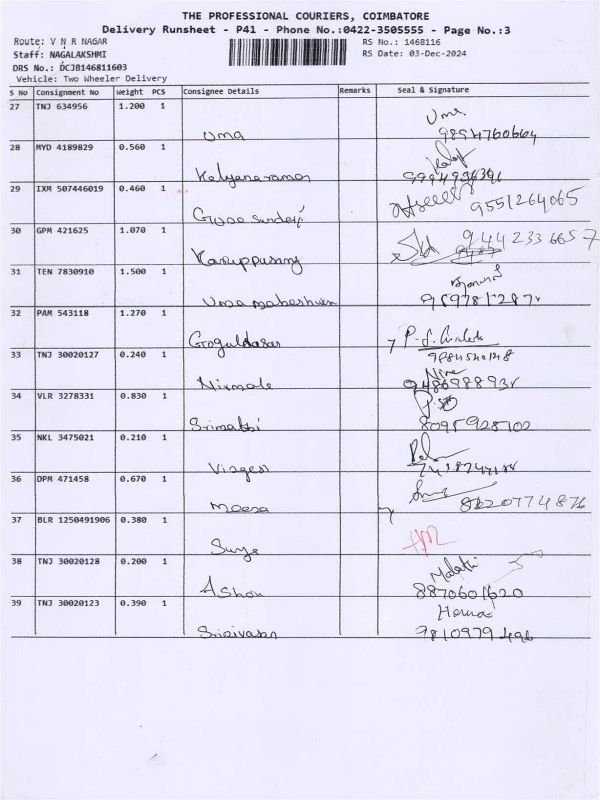 THE PROFESSIONAL COURIERS, COIMBATORE
Delivery Runsheet - P41 - Phone No.:0422-3505555 - Page No.:3
Route: V N R NAGAR RS No.: 1468116
Staff: NAGALAKSHMI RS Date: 03-Dec-2024
DRS No.: DCJ8146811603
Vehicle: Two Wheeler Delivery
S No Consignment No Weight PCS Consignee Details Remarks Seal & Signature
27 TNJ 634956 1.200 1 Uma Uma
9894760664
28 MYD 4189829 0.560 1 Kalyanaraman
29 IXM 507446019 0.460 1 9551264065
30 GPM 421625 1.070 1 Karuppusamy 9442336657
31 TEN 7830910 1.500 1 Uma maheshwari
32 PAM 543118 1.270 1 Goguldasan
33 TNJ 30020127 0.240 1 Nirmale
34 VLR 3278331 0.830 1 Srimathi
8095928102
35 NKL 3475021 0.210 1
36 DPM 471458 0.670 1 Meera 8220774876
37 BLR 1250491906 0.380 1 Surya
38 TNJ 30020128 0.200 1 Ashou Malathi
8870601620
39 TNJ 30020123 0.390 1 Srinivasan Hema
9810979496